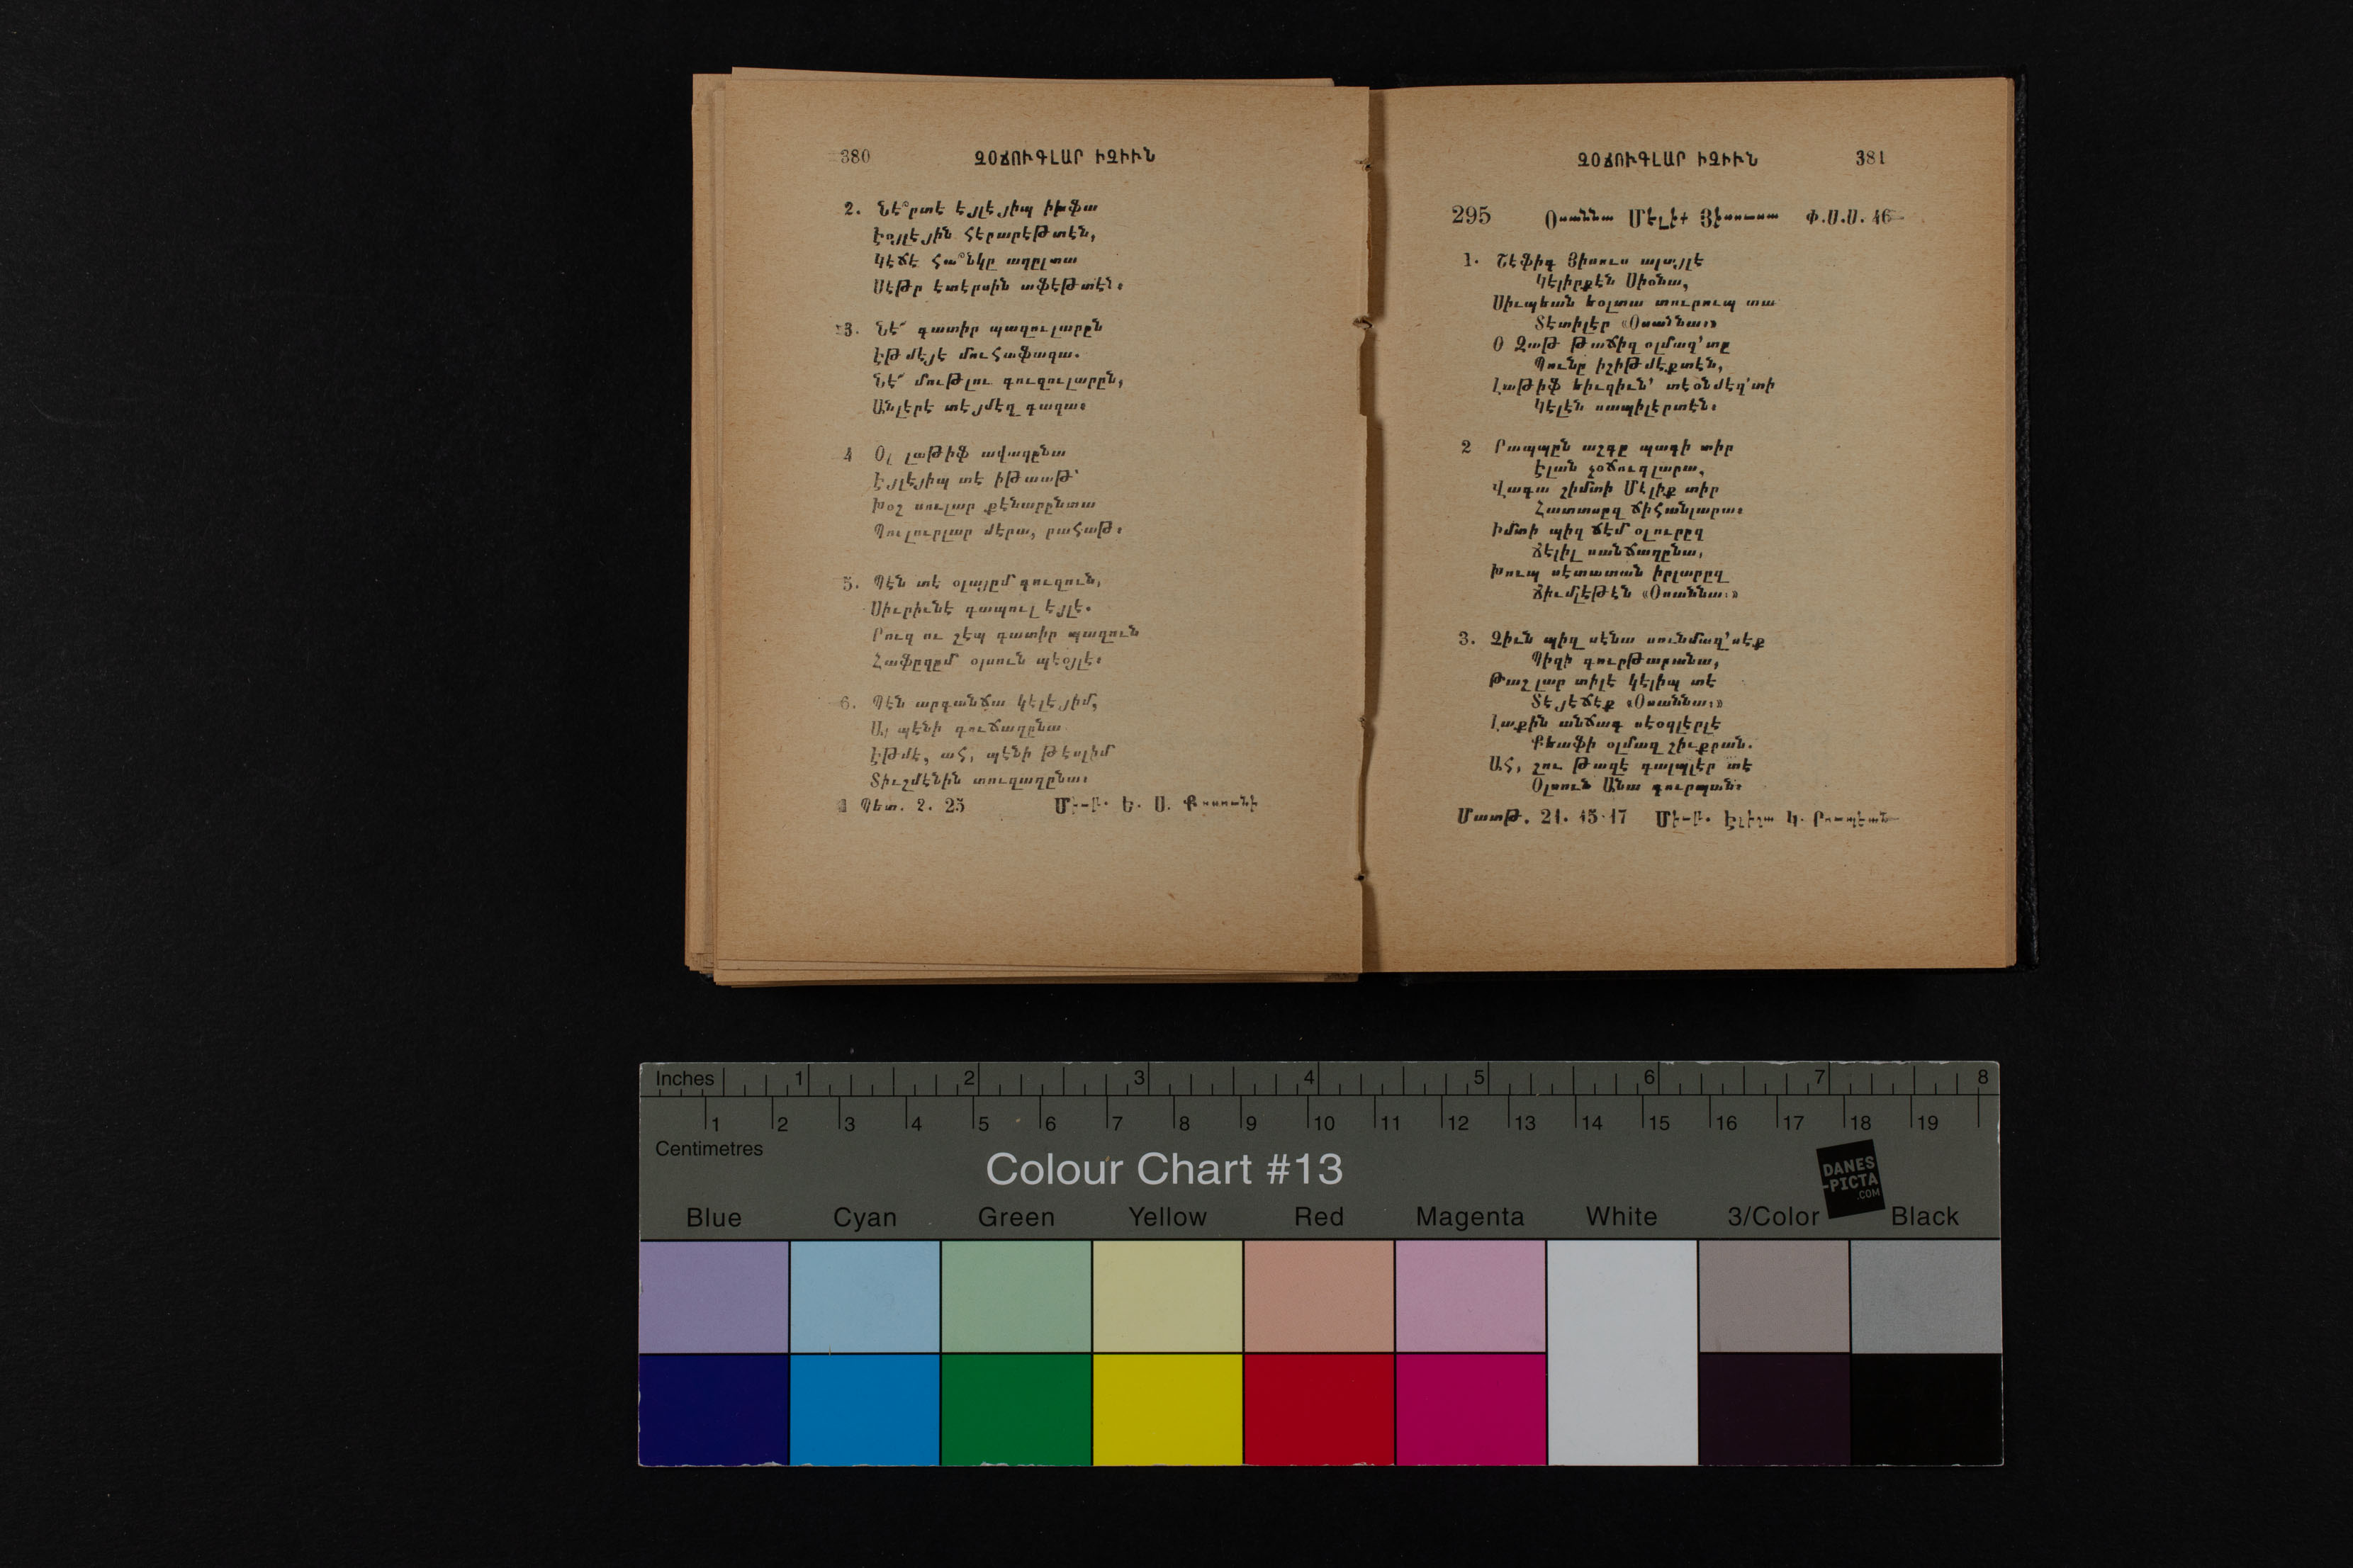 380 ՉՕՃՈՒԳԼԱՐ ԻՉԻՒՆ
2. Նե՞րտէ էյլէյիպ իխֆա
Էօյլէյին հէրարէթտէն,
Կէճէ հա՞նկը աղըլտա
Սէթր էտէրսին աֆէթտէն։
3. Նէ՜ գատիր պաղուլարըն
Էթմէյէ մուհաֆազա.
Նէ՜ մութլու գուզուլարըն,
Անլէրէ տէյմէզ գազա։
4 Օլ լաթիֆ ավազընա
Էյլէյիպ տէ իթաաթ՝
Խօշ սուլար քէնարընտա
Պուլուրլար մէրա, րահաթ։
5. Պէն տէ օլայըմ գուզուն,
Սիւրիւնէ գապուլ էյլէ.
Րուզ ու շէպ գատիր պազուն
Հաֆըզըմ օլսուն պէօյլէ։
6. Պէն արգանճա կէլէյիմ,
Ալ պէնի գուճաղընա
Էթմէ, ահ, պէնի թէսլիմ
Տիւշմէնին տուզաղընա։
Ա Պետ. 2. 25 Միւր. Ե. Ս. Քասունի
ՉՕՃՈՒԳԼԱՐ ԻՉԻՒՆ 381
295 Օսաննա Մէլիք Յիսուսա Փ.Ս.Ս. 46
1. Շէֆիգ Յիսուս ալայլէ
Կէլիրքէն Սիօնա,
Սիւպեան եօլտա տուրուպ տա
Տէտիլէր «Օսաննա։»
Օ Զաթ թաճիզ օլմազ՚տը
Պունը իշիթմէքտէն,
Լաթիֆ եիւզիւն՚ տէօնմէզ՚տի
Կէլէն սապիլէրտէն։
2 Րապպըն աշգը պագի տիր
Էլան չօճուգլարա,
Վագա շիմտի Մէլիք տիր
Հատտսըզ ճիհանլարա։
Իմտի պիզ ճէմ օլուրըզ
Ճէլիլ սանճաղընա,
Խուպ սէտատան իրլարըզ
Ճիւմլէթէն «Օսաննա։»
3. Չիւն պիզ սէնա սունմազ՚սէք
Պիզի գուրթարանա,
Թաշլար տիլէ կէլիպ տէ
Տէյէճէք «Օսաննա։»
Լաքին անճագ սէօզլէրլէ
Քեաֆի օլմազ շիւքրան.
Ահ, շու թազէ գալպլէր տէ
Օլսուն Անա գուրպան։
Մատթ. 21. 15-17 Միւր.
Inches 1 2 3 4 5 6 7 8
1 2 3 4 5 6 7 8 9 10 11 12 13 14 15 16 17 18 19
Centimetres
Colour Chart #13
DANES
-PICTA
.COM
Blue Cyan Green Yellow Red Magenta White 3/Color Black